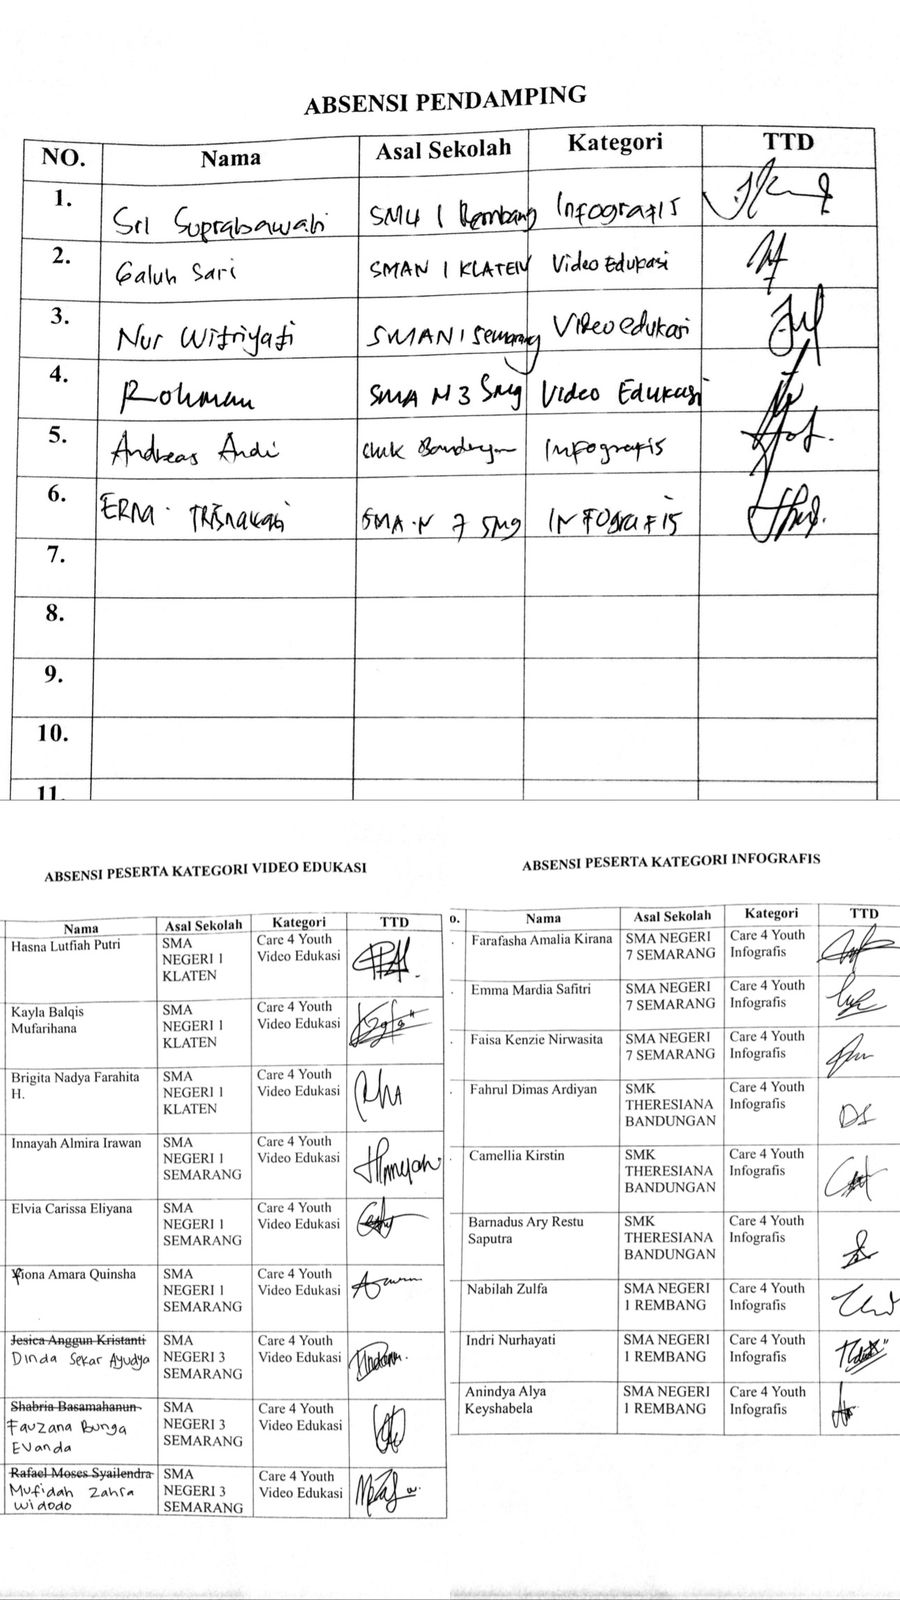 ABSENSI PENDAMPING
NO. Nama Asal Sekolah Kategori TTD
1. Sri Suprabawati SMU 1 Rembang Infografis
2. Galuh Sari SMAN 1 KLATEN Video Edukasi
3. Nur Witriyati SMAN 1 Semarang Video edukasi
4. Rohman SMA N 3 Smg Video Edukasi
5. Andreas Andi Infografis
6. ERNA TRISNAWATI SMA N 7 SMG INFOgrafis
7.
8.
9.
10.
11.
ABSENSI PESERTA KATEGORI VIDEO EDUKASI
Nama Asal Sekolah Kategori TTD
Hasna Lutfiah Putri SMA Care 4 Youth
NEGERI 1 Video Edukasi
KLATEN
Kayla Balqis SMA Care 4 Youth
Mufarihana NEGERI 1 Video Edukasi
KLATEN
Brigita Nadya Farahita SMA Care 4 Youth
H. NEGERI 1 Video Edukasi
KLATEN
Innayah Almira Irawan SMA Care 4 Youth
NEGERI 1 Video Edukasi
SEMARANG
Elvia Carissa Eliyana SMA Care 4 Youth
NEGERI 1 Video Edukasi
SEMARANG
Fiona Amara Quinsha SMA Care 4 Youth
NEGERI 1 Video Edukasi
SEMARANG
Jesica Anggun Kristanti SMA Care 4 Youth
Dinda Sekar Ayudya NEGERI 3 Video Edukasi
SEMARANG
Shabria Basamahanun SMA Care 4 Youth
Fauzana Bunga NEGERI 3 Video Edukasi
Evanda SEMARANG
Rafael Moses Syailendra SMA Care 4 Youth
Mufidah Zahra NEGERI 3 Video Edukasi
Widodo SEMARANG
ABSENSI PESERTA KATEGORI INFOGRAFIS
o. Nama Asal Sekolah Kategori TTD
Farafasha Amalia Kirana SMA NEGERI Care 4 Youth
7 SEMARANG Infografis
Emma Mardia Safitri SMA NEGERI Care 4 Youth
7 SEMARANG Infografis
Faisa Kenzie Nirwasita SMA NEGERI Care 4 Youth
7 SEMARANG Infografis
Fahrul Dimas Ardiyan SMK Care 4 Youth
THERESIANA Infografis
BANDUNGAN
Camellia Kirstin SMK Care 4 Youth
THERESIANA Infografis
BANDUNGAN
Barnadus Ary Restu SMK Care 4 Youth
Saputra THERESIANA Infografis
BANDUNGAN
Nabilah Zulfa SMA NEGERI Care 4 Youth
1 REMBANG Infografis
Indri Nurhayati SMA NEGERI Care 4 Youth
1 REMBANG Infografis
Anindya Alya SMA NEGERI Care 4 Youth
Keyshabela 1 REMBANG Infografis